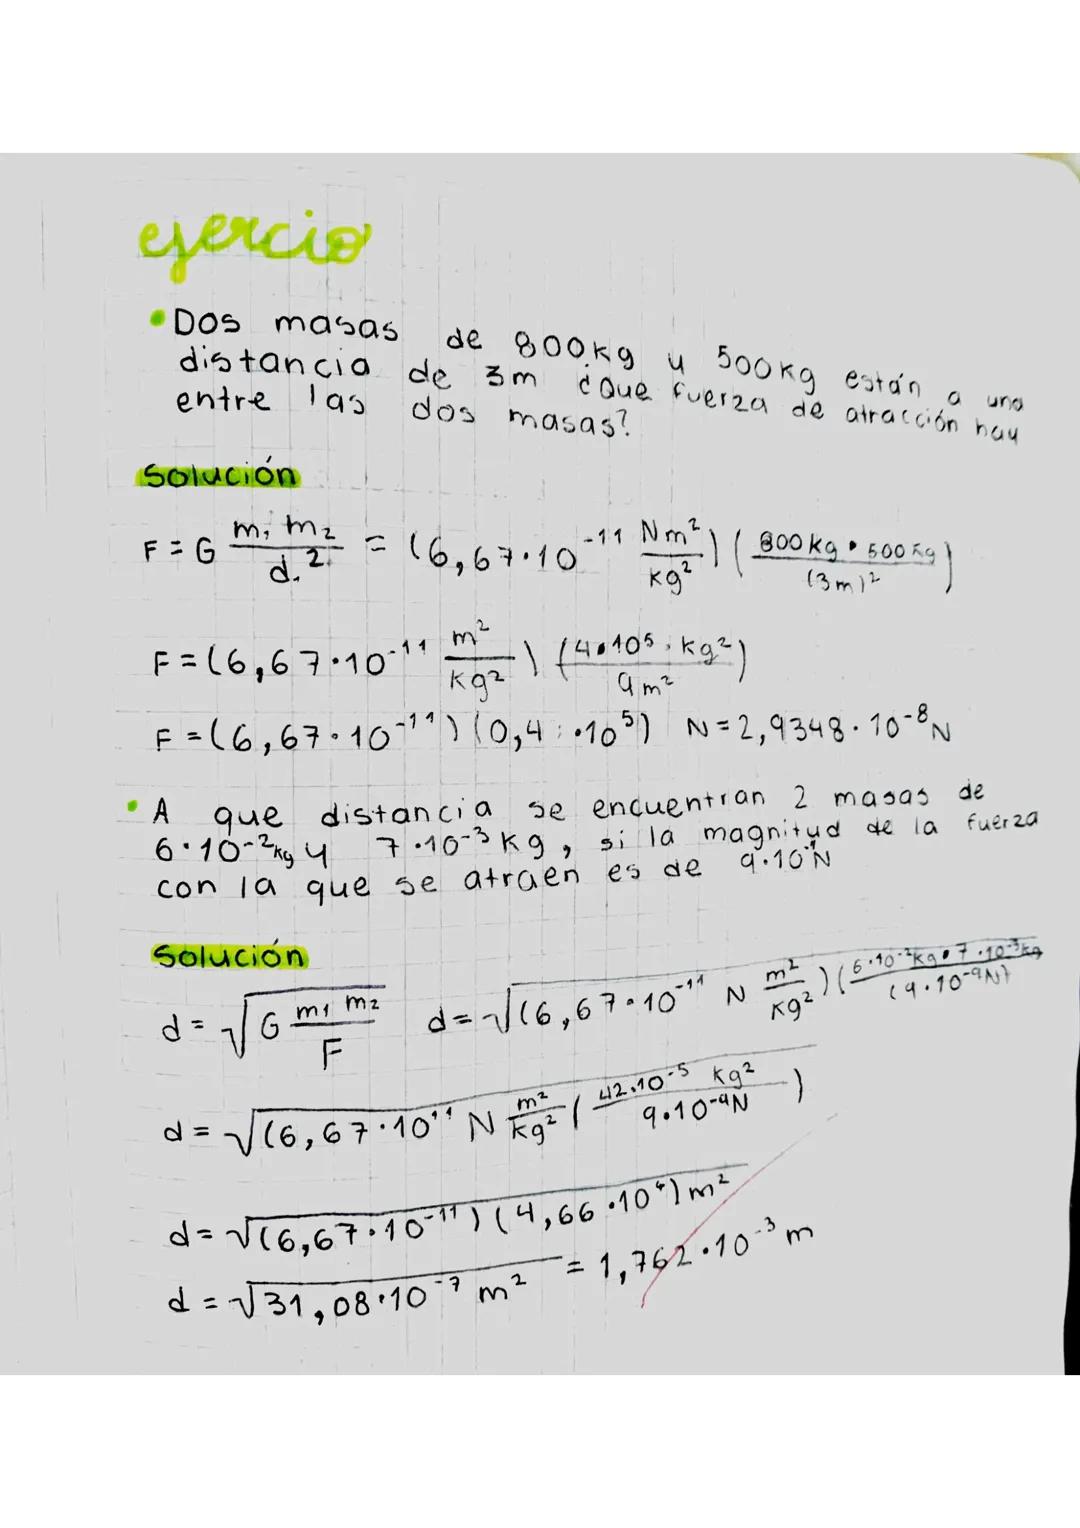 ejercio
•Dos masas de 800kg y 500kg están a una
distancia de 3m ¿Que fuerza de atracción hay
entre las dos masas?
Solución
F = G m₁ m₂ / d.² = (6,67·10⁻¹¹ Nm²/kg²) (800kg • 500kg / (3m)²)
F = (6,67·10⁻¹¹ m²/kg²) (4•10⁵·kg²/9m²)
F = (6,67·10⁻¹¹) (0,4 ·10⁵) N = 2,9348·10⁻⁸N
• A que distancia se encuentran 2 masas de
6·10⁻²kg y 7·10⁻³kg, si la magnitud de la fuerza
con la que se atraen es de 9·10 N
Solución
d = √G m₁ m₂ / F d = √(6,67·10⁻¹¹ N m²/kg²) (6·10⁻²kg • 7·10⁻³kg / (9·10⁻⁹N)
d = √(6,67·10¹¹ N m²/kg² (42.10⁻⁵ kg² / 9·10⁻⁹N)
d = √(6,67·10⁻¹¹) (4,66·10⁴) m²
d = √31,08·10⁻⁷ m² = 1,762·10⁻³ m